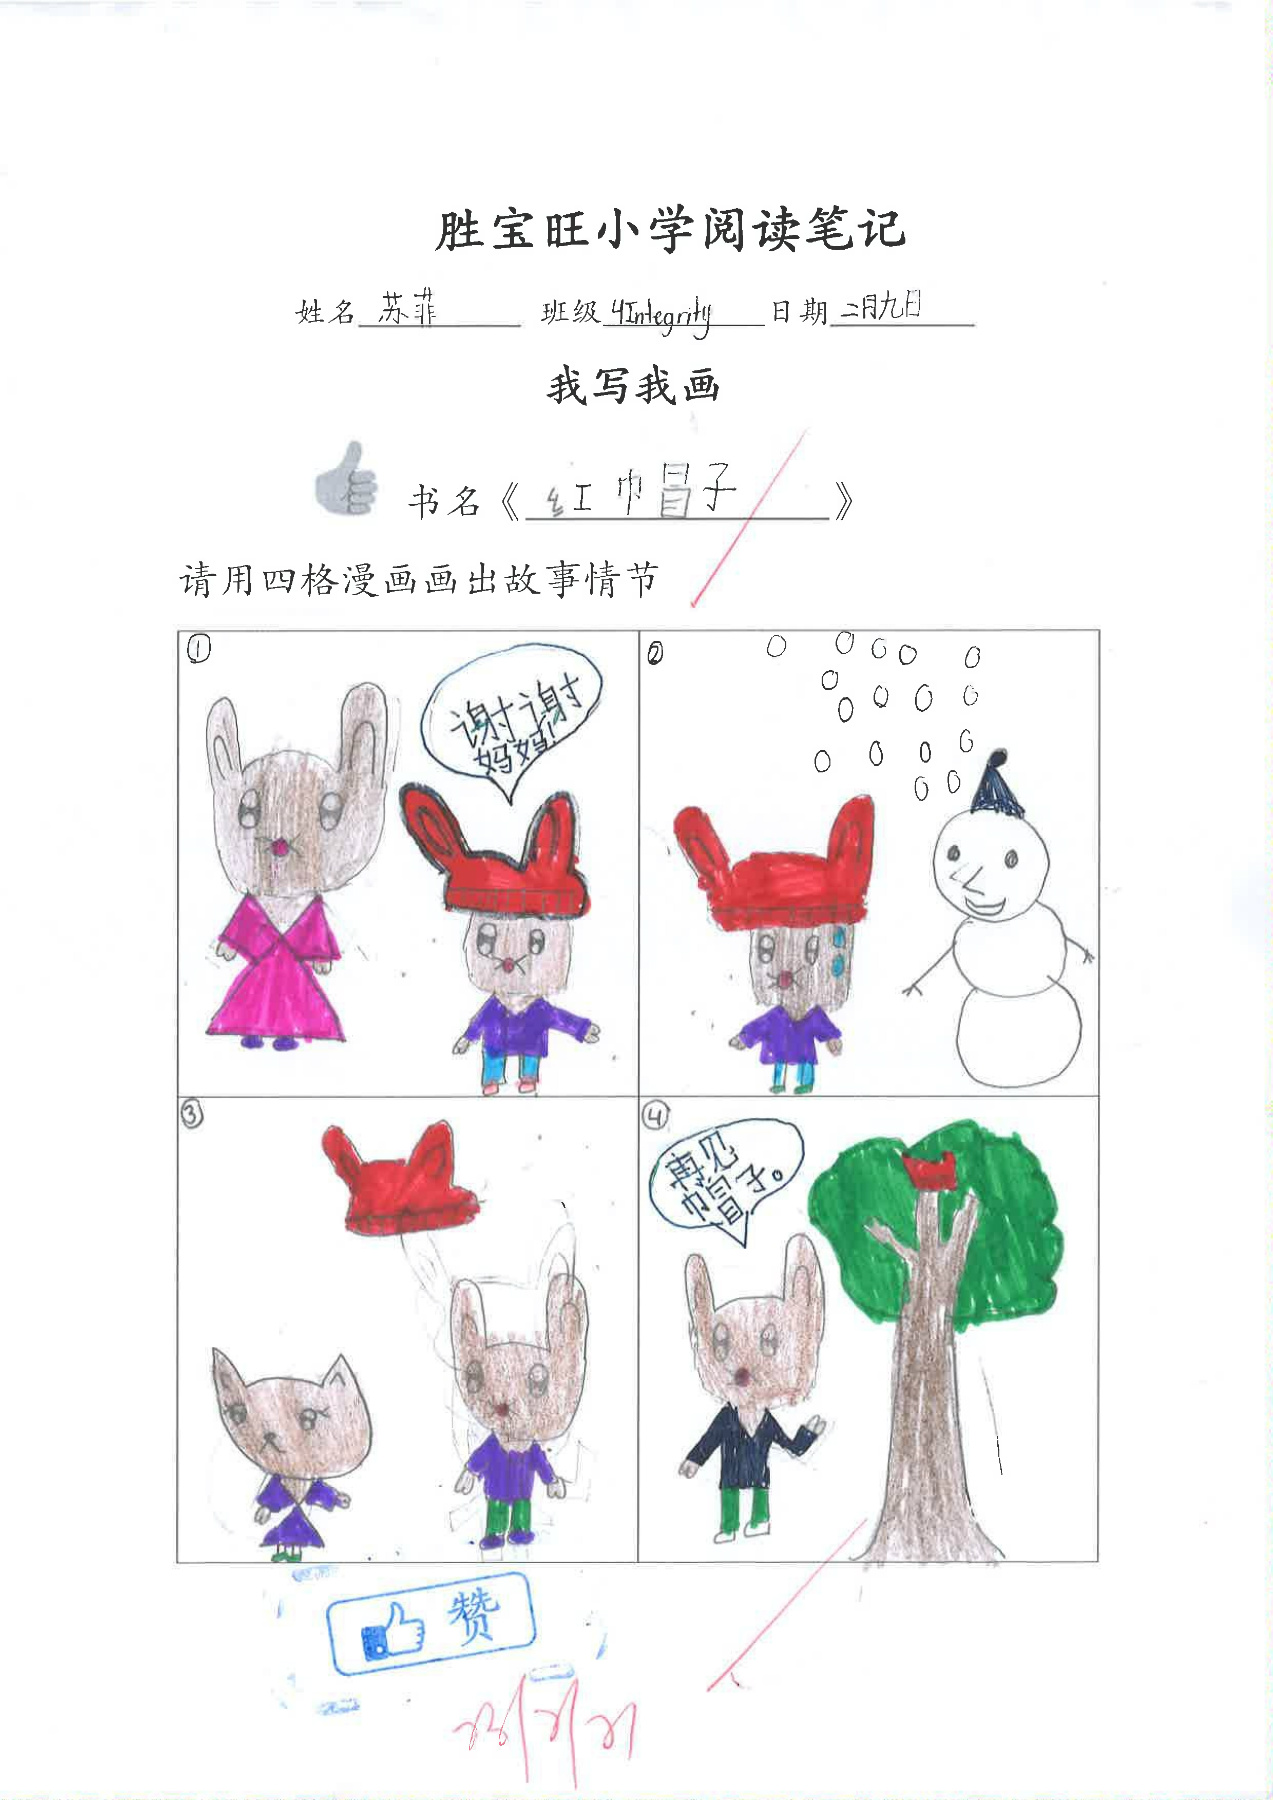 胜宝旺小学阅读笔记
姓名 苏菲 班级 4Integrity 日期 二月九日
我写我画
书名《红巾冒子》
请用四格漫画画出故事情节
①
谢谢
妈妈!
②
③
④
再见
巾冒子。
赞
23/2/21